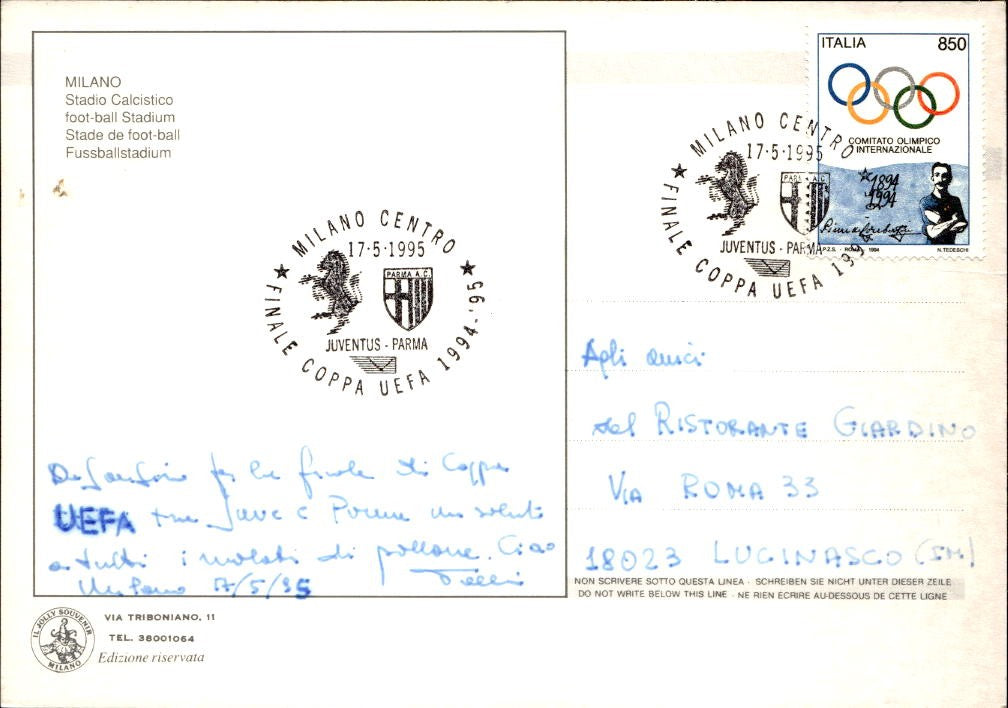 MILANO
Stadio Calcistico
foot-ball Stadium
Stade de foot-ball
Fussballstadium
MILANO CENTRO
17·5·1995
PARMA A.C.
JUVENTUS - PARMA
FINALE COPPA UEFA 1994-'95
ITALIA 850
COMITATO OLIMPICO
INTERNAZIONALE
1894
1994
P.Z.S. - ROMA 1994 N. TEDESCHI
MILANO CENTRO
17·5·1995
PARMA A.C.
JUVENTUS - PARMA
FINALE COPPA UEFA 199
Da San Siro per la finale di Coppa
UEFA tra Juve e Parma un saluto
a tutti i malati di pallone. Ciao
Milano 17/5/95
Agli amici
del RISTORANTE GIARDINO
VIA ROMA 33
18023 LUCINASCO (IM)
NON SCRIVERE SOTTO QUESTA LINEA - SCHREIBEN SIE NICHT UNTER DIESER ZEILE
DO NOT WRITE BELOW THIS LINE - NE RIEN ÉCRIRE AU-DESSOUS DE CETTE LIGNE
IL JOLLY SOUVENIR
MILANO
VIA TRIBONIANO, 11
TEL. 38001064
Edizione riservata